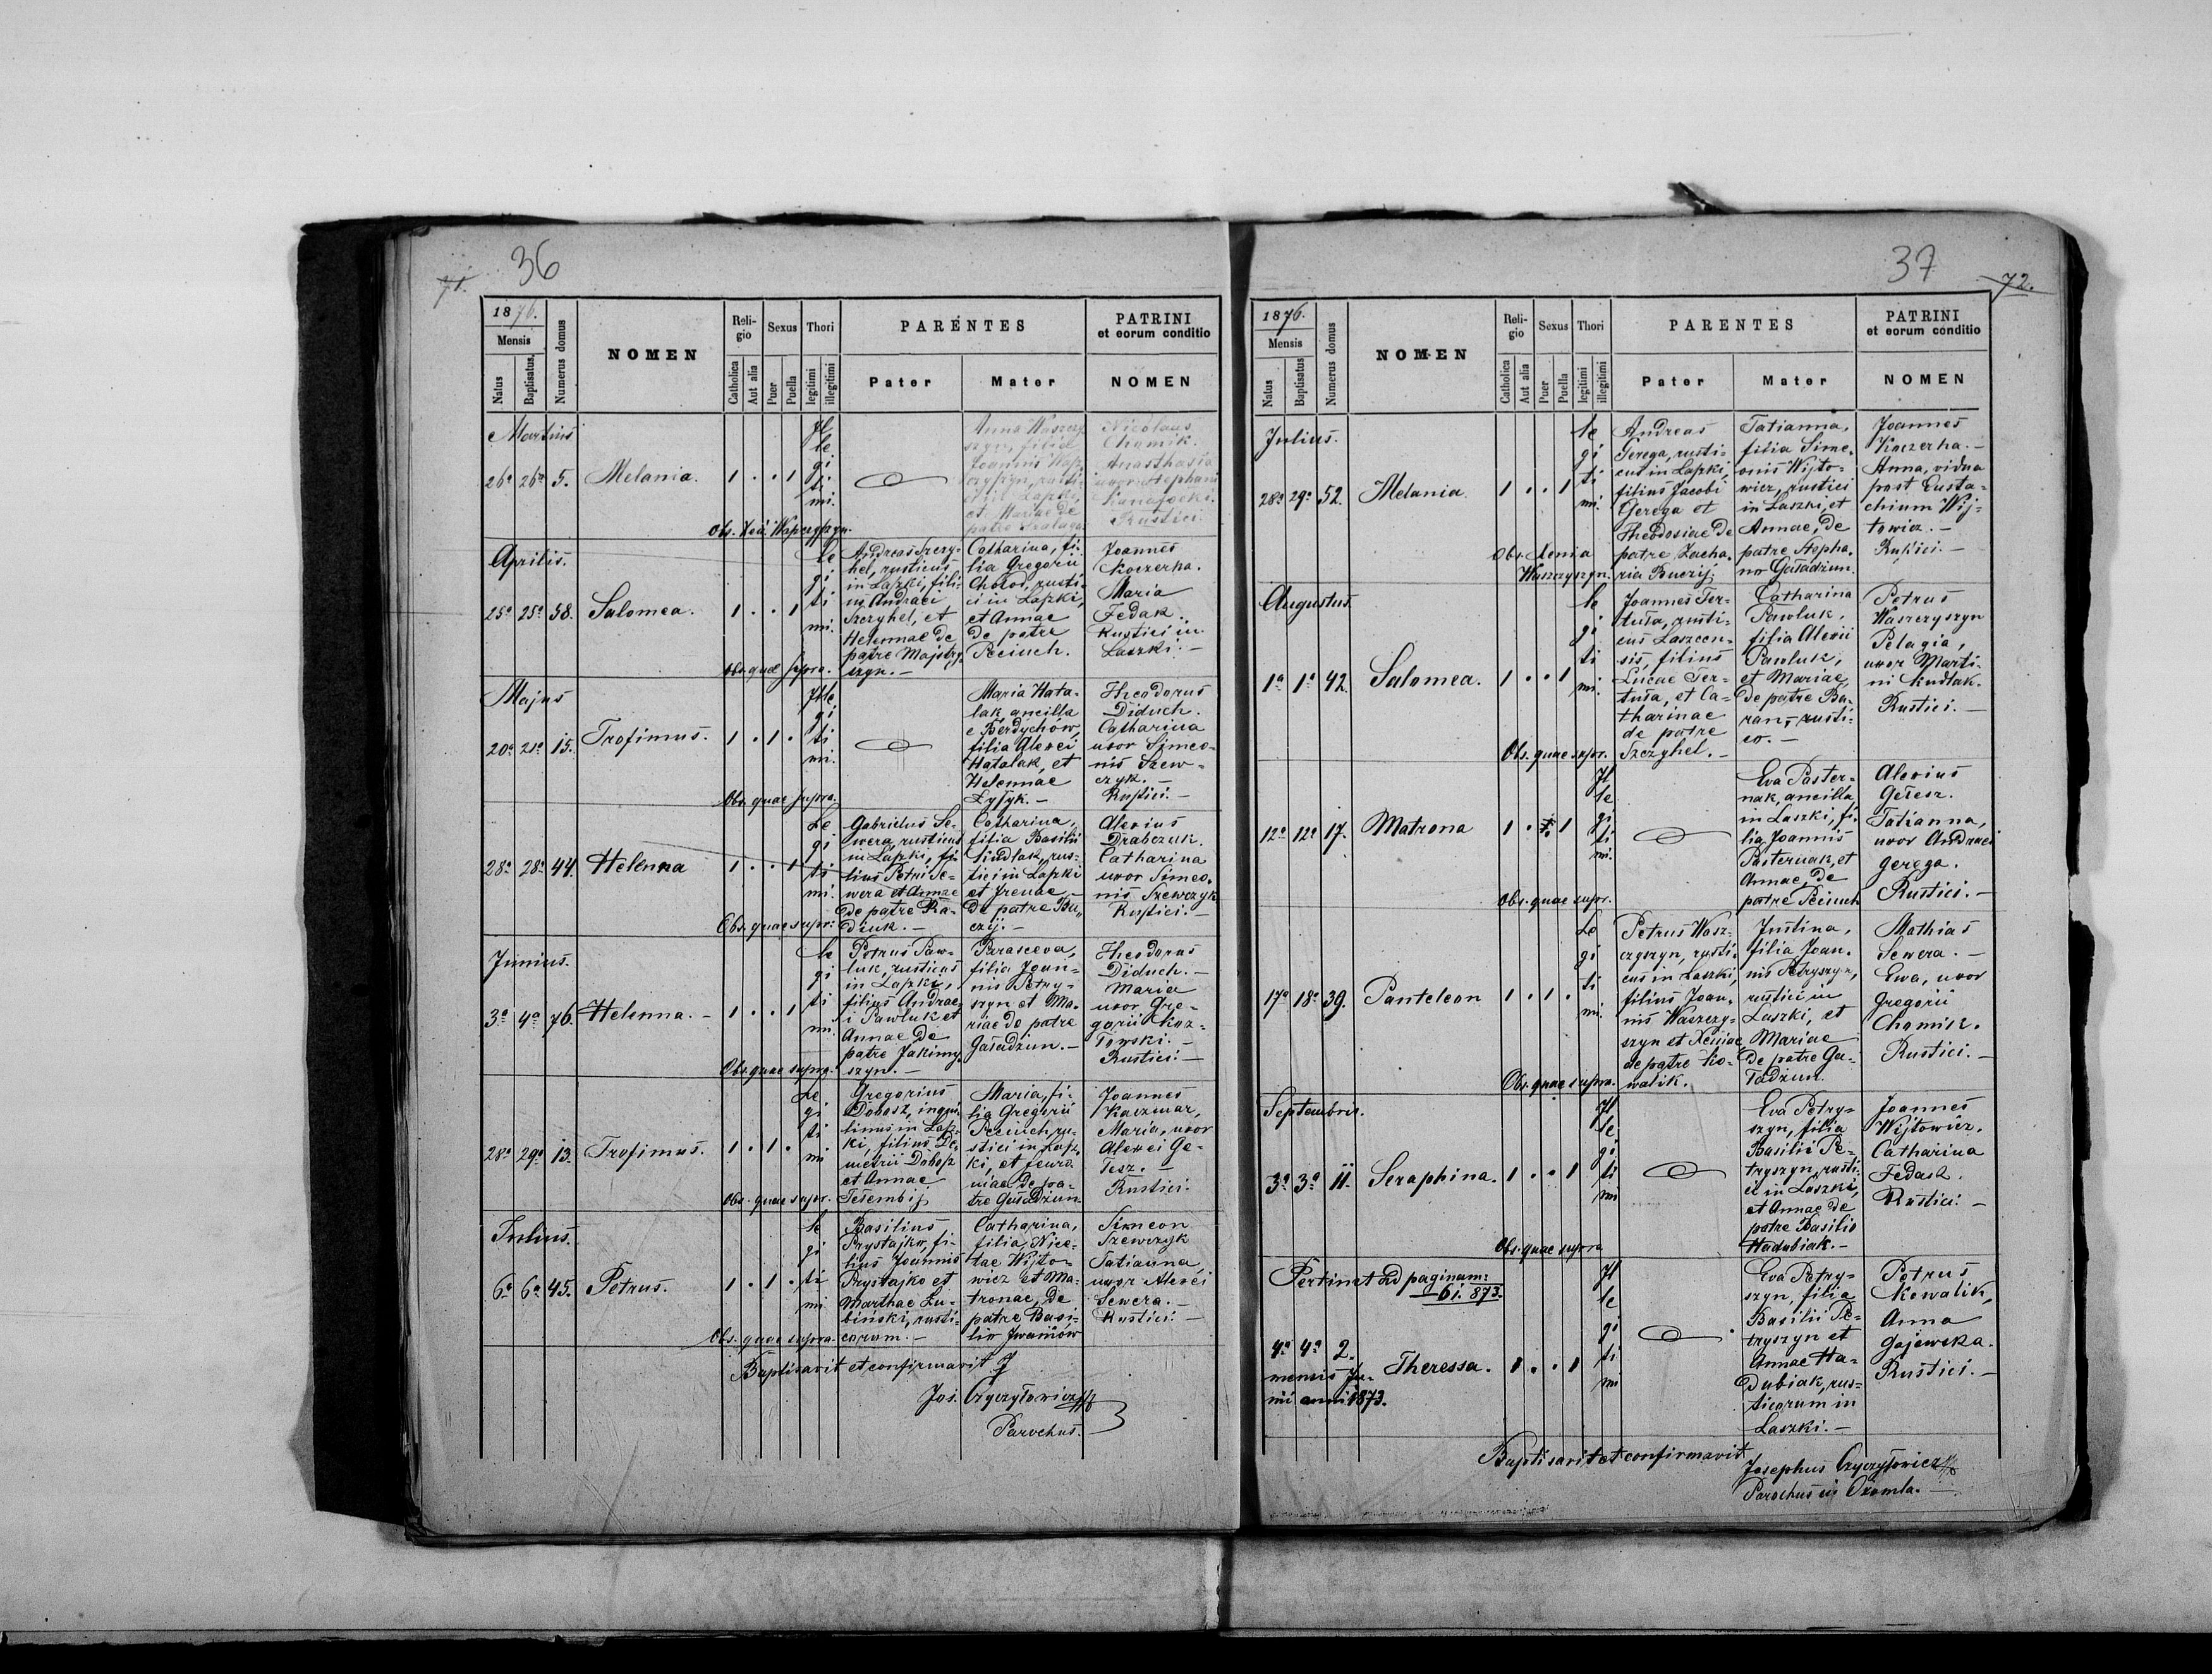 36
71.
1876.
Mensis
Natus
Baptisatus
Numerus domus
NOMEN
Reli-
gio
Catholica
Aut alia
Sexus
Puer
Puella
Thori
legitimi
illegitimi
PARENTES
Pater
Mater
PATRINI
et eorum conditio
NOMEN
Martius
26a 26a 5. Melania. 1 . . 1
Il
le
gi
ti
mi.
Anna Waszczy-
szyn, filia
Joannis Wasz-
czyszyn, rusti-
ci in Laszki,
et Mariae de
patre
Nicolaus
Chomik.
Anasthasia
uxor Stephani
Rustici
Obs. Xeni Waszczyszyn.
Aprilis.
25a 25a 58. Salomea. 1 . . 1
le
gi
ti
mi.
Andreas Szczy-
hel, rusticus
in Laszki, fili-
us Andraei
Szczyhel, et
Helennae de
patre Majstry-
szyn. —
Catharina, fi-
lia Gregorii
Chołod, rusti-
ci in Laszki,
et Annae
de patre
Peciuch.
Joannes
Koczerha.
Maria
Fedak.
Rustici in
Laszki. —
Obs. quae supra.
Majus
20a 21a 15. Trofimus. 1 . 1 .
Ille
gi
ti
mi.
Maria Hata-
lak, ancilla
e Berdychów,
filia Alexei
Hatalak, et
Helennae
Łysyk. —
Theodorus
Diduch.
Catharina
uxor Simeo-
nis Szew-
czyk. —
Rustici. —
Obs. quae supra.
28a 28a 44. Helenna 1 . . 1
Le
gi
ti
mi.
Gabrielus Se-
wera, rusticus
in Laszki, fi-
lius Petri Se-
wera et Annae
de patre Ra-
dziuk. —
Catharina,
filia Basilii
Kindlak, rus-
tici in Laszki
et Irenae, —
de patre Bu-
czij. —
Alexius
Drabczuk.
Catharina
uxor Simeo-
nis Szewczyk
Rustici. —
Obs. quae supr.
Junius.
3a 4a 76. Helenna. — 1 . . 1
le
gi
ti
mi.
Petrus Paw-
luk, rusticus
in Laszki,
filius Andrae-
i Pawluk et
Annae de
patre Jakimy-
szyn. —
Parasceva,
filia Joan-
nis Petry-
szyn et Ma-
riae de patre
Gaładzun. —
Theodorus
Diduch. —
Maria
uxor Gre-
gorii Koz-
łowski. —
Rustici. —
Obs. quae supra.
28a 29a 13. Trofimus. 1 . 1 .
Le
gi
ti
mi
Gregorius
Dobosz, inqui-
linus in Lasz-
ki, filius De-
metrii Dobosz
et Annae
Maria, fi-
lia Gregorii
Peciuch, ru-
stici in Lasz-
ki, et
de pa-
tre Gaładzun
Joannes
Kaczmar,
Maria, uxor
Alexei Ge-
łesz. —
Rustici.
Obs. quae supr.
Julius.
6a 6a 45. Petrus. 1 . 1 .
le
gi
ti
mi.
Basilius
Prystajko, fi-
lius Joannis
Prystajko et
Marthae Lu-
biński, rusti-
corum. —
Catharina,
filia Nice-
tae Wijto-
wicz et Ma-
tronae, de
patre Basi-
lio Iwaniów
Simeon
Szewczyk
Tatianna,
uxor Alexei
Sewera. —
Rustici. —
Obs. quae supra.
Baptisavit et confirmavit
Jos. Czyczyłowicz
Parochus.
37
72.
1876.
Mensis
Natus
Baptisatus
Numerus domus
NOMEN
Reli-
gio
Catholica
Aut alia
Sexus
Puer
Puella
Thori
legitimi
illegitimi
PARENTES
Pater
Mater
PATRINI
et eorum conditio
NOMEN
Julius.
28a 29a 52. Melania. 1 . . 1
le
gi
ti
mi.
Andreas
Gerega, rusti-
cus in Laszki,
filius Jacobi
Gerega et
Theodosiae de
patre Zacha-
ria Buczij.
Tatianna,
filia Sime-
onis Wijto-
wicz, rustici
in Laszki, et
Annae, de
patre Stepha-
no Gaładzun.
Joannes
Koczerha. —
Anna, vidua
post Eusta-
chium Wij-
towicz. —
Rustici. —
Obs. Xenia
Waszczyszyn.
Augustus
1a 1a 42. Salomea. 1 . . 1
le
gi
ti
mi.
Joannes Ter-
tuła, rusti-
cus Laszcen-
sis, filius
Lucae Ter-
tuła, et Ca-
tharinae
de patre
Szczyhel. —
Catharina
Pawluk,
filia Alexii
Pawluk,
et Mariae,
de patre Ba-
ran, — rusti-
co. —
Petrus
Waszczyszyn
Pelagia,
uxor Marti-
ni Kindlak.
Rustici. —
Obs. quae supr.
12a 12a 17. Matrona 1 . . 1
Il
le
gi
ti
mi.
Eva Paster-
nak, ancilla
in Laszki, fi-
lia Joannis
Pasternak, et
Annae, de
patre Peciuch
Alexius
Gełesz.
Tatianna,
uxor Andraei
Gerega.
Rustici. —
Obs. quae supr.
17a 18a 39. Panteleon 1 . 1 .
Le
gi
ti
mi.
Petrus Wasz-
czyszyn, rusti-
cus in Laszki,
filius Joan-
nis Waszczy-
szyn et Xeniae,
de patre Ko-
walik.
Justina,
filia Joan-
nis Petryszyn,
rustici in
Laszki, et
Mariae
de patre Ga-
ładzun.
Mathias
Sewera. —
Ewa, uxor
Gregorii
Chomik.
Rustici. —
Obs. quae supra.
Septembris.
3a 3a 11. Seraphina. 1 . . 1
Il
le
gi
ti
mi
Eva Petry-
szyn, filia
Basilii Pe-
tryszyn, rusti-
ci in Laszki,
et Annae de
patre Basilio
Hadubiak. —
Joannes
Wijtowicz.
Catharina
Fedak.
Rustici. —
Obs. quae supra
Pertinet ad paginam:
61. 873.
4a 4a 2.
mensis Ju-
nii anni 1873.
Theressa. 1 . . 1
Il
le
gi
ti
mi
Eva Petry-
szyn, filia
Basilii Pe-
tryszyn et
Annae Ha-
dubiak, rus-
ticorum in
Laszki. —
Petrus
Kowalik,
Anna
Gajewska.
Rustici. —
Baptisavit et confirmavit
Josephus Czyczyłowicz
Parochus in Ożomla. —